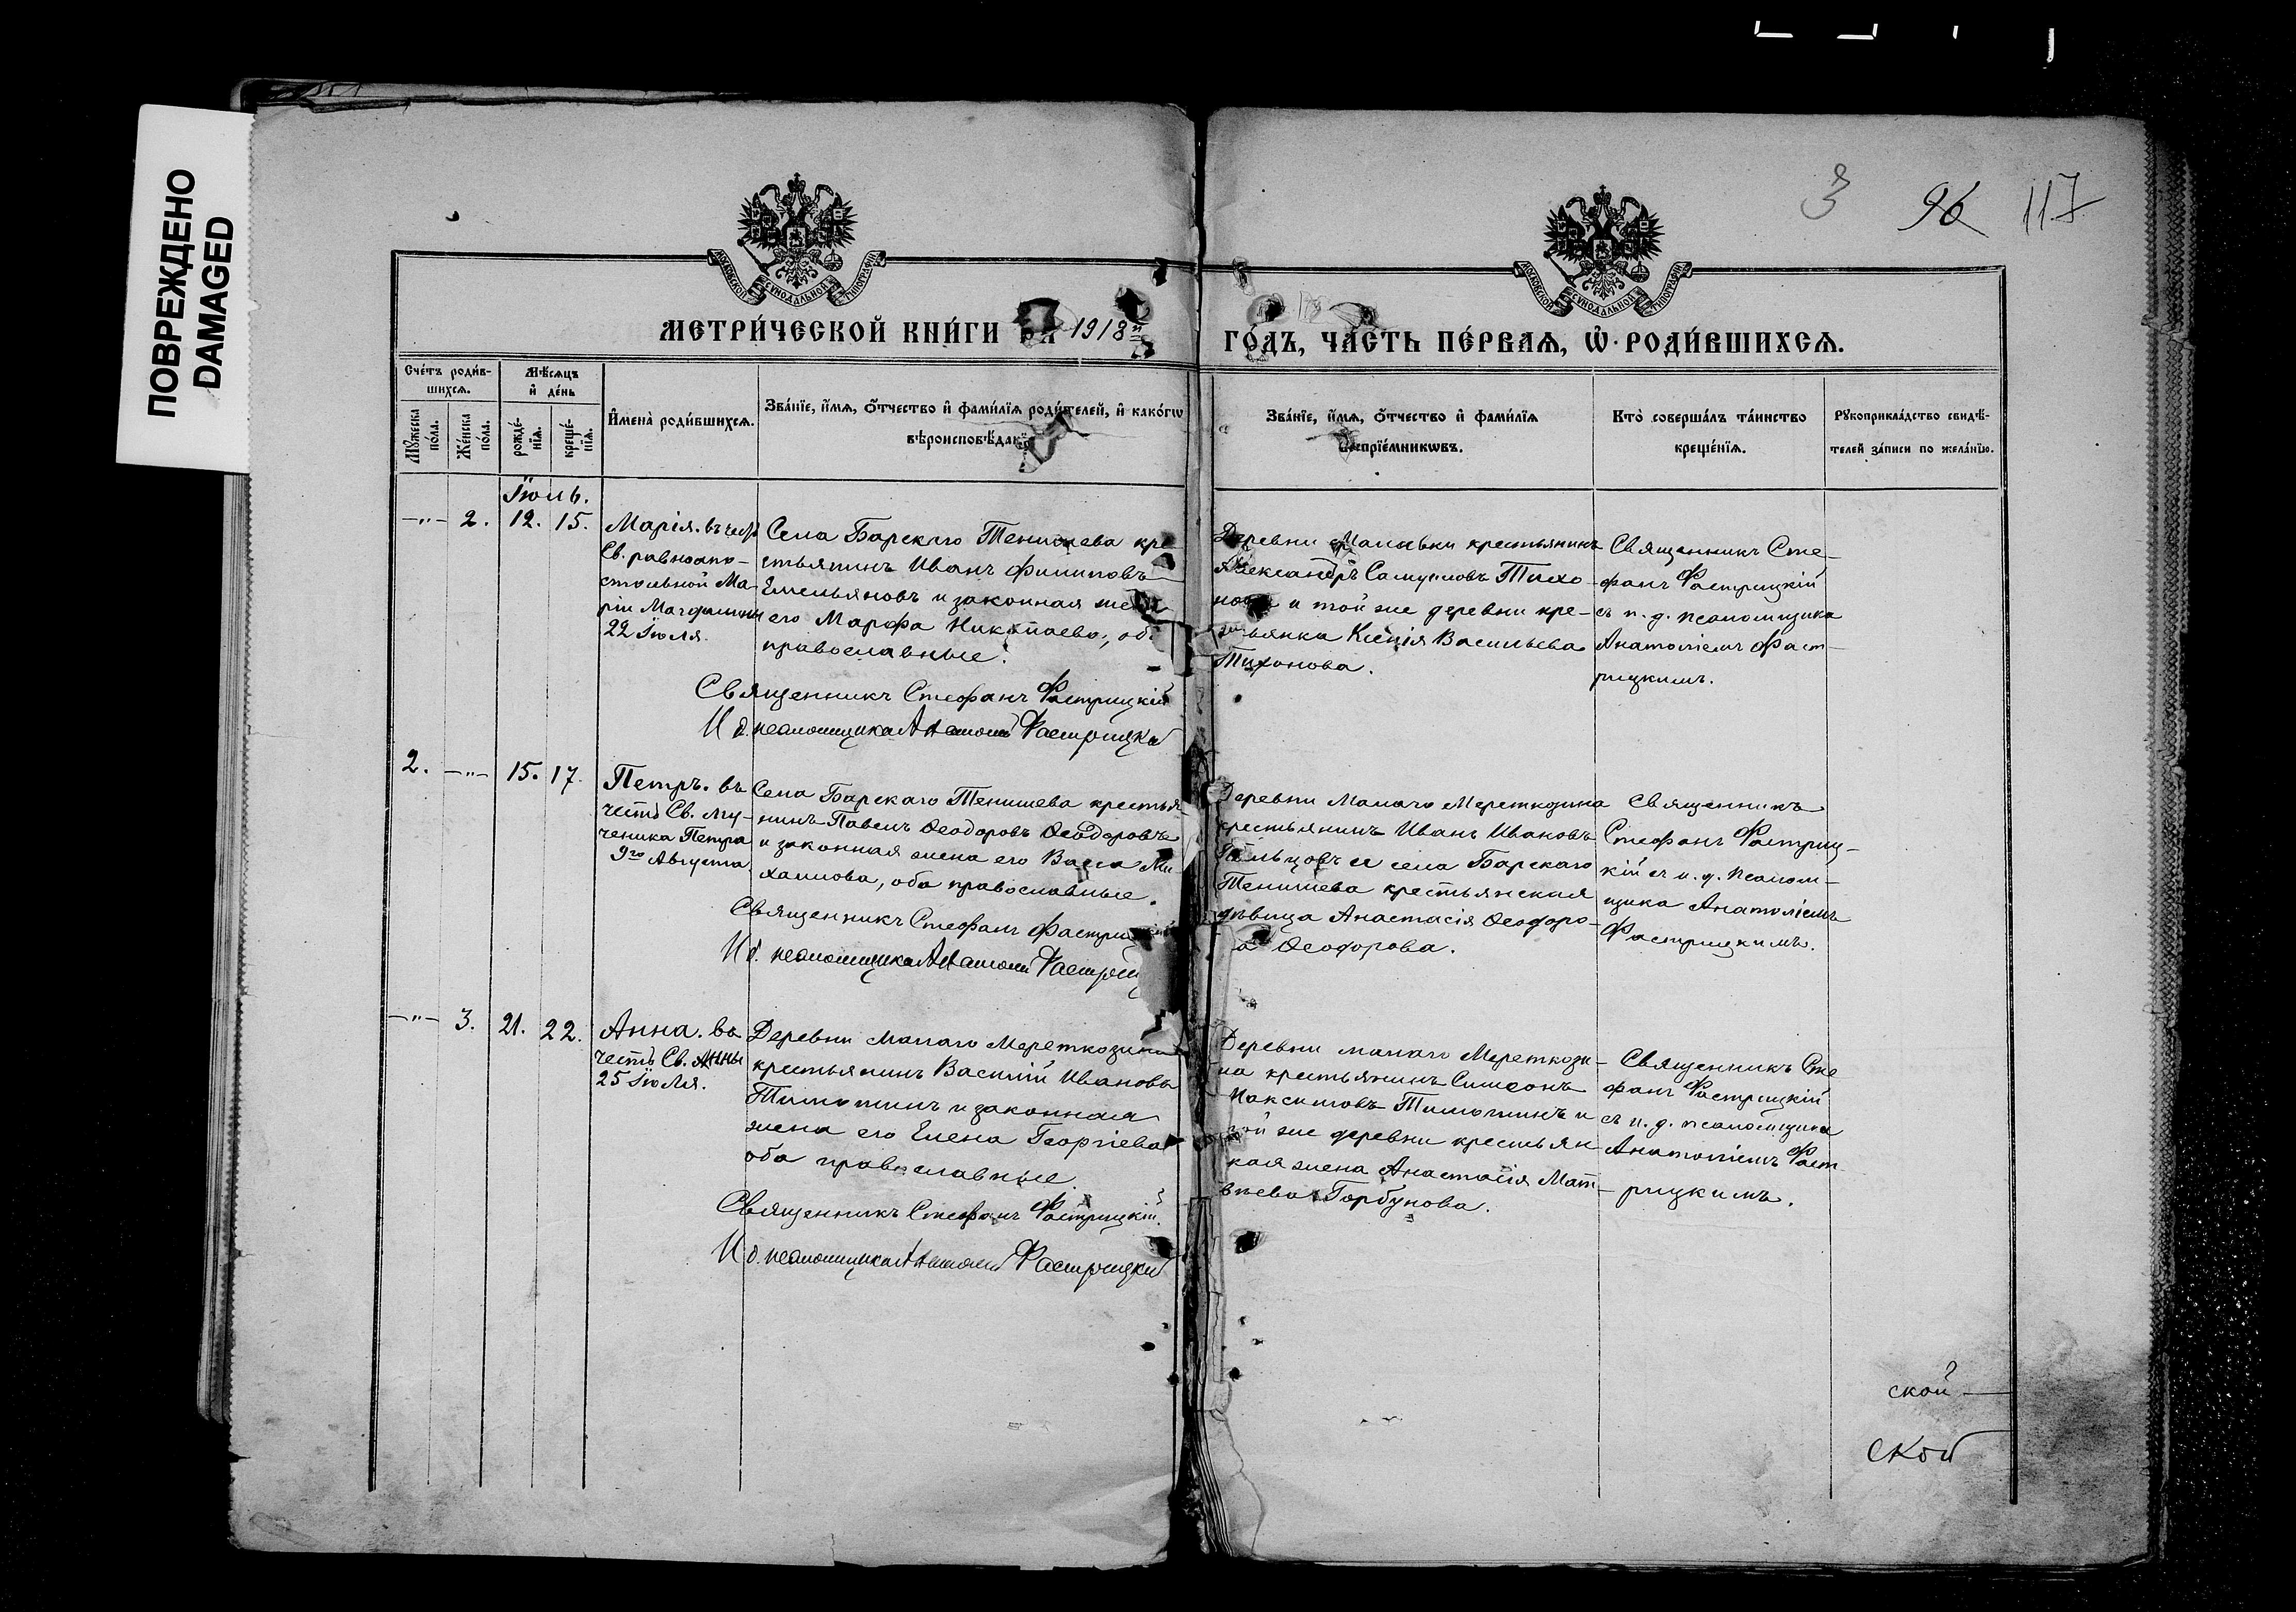 ПОВРЕЖДЕНО
DAMAGED
3 96 117
МОСКОВСКОЙ СѴНОДАЛЬНОЙ ТИПОГРАФІИ
МОСКОВСКОЙ СѴНОДАЛЬНОЙ ТИПОГРАФІИ
МЕТРИ́ЧЕСКОЙ КНИ́ГИ НА 1918й
ГО́ДЪ, ЧА́СТЬ ПЕ́РВАЯ, Ѡ РОДИ́ВШИХСЯ.
Сче́тъ роди́в-
шихся.
Мꙋжеска по́ла.
Же́нска по́ла.
Мѣ́сяцъ и҆ де́нь
рожде́-нїя.
креще́-нїя.
И҆мена̀ роди́вшихся.
Зва́нїе, и҆́мя, ѻ҆́тчество и҆ фами́лїя роди́телей, и҆ како́гѡ
вѣроисповѣ́данїя.
Зва́нїе, и҆́мя, ѻ҆́тчество и҆ фами́лїя
воспрїе́мникѡвъ.
Кто̀ соверша́лъ та́инство
креще́нїя.
Рꙋкоприкла́дство свидѣ́-
телей за́писи по жела́нїю.
Іюль.
—„— 2. 12. 15.
Марія. въ честь
Св. равноапо-
стольной Ма-
ріи Магдалины
22 Іюля.
Села Барскаго Тенишева кре-
стьянинъ Иванъ Филиповъ
Емельяновъ и законная жена
его Марфа Николаева, оба
православные.
Священникъ Стефанъ Фастрицкій
И д. псаломщика Анатолій Фастрицкій
Деревни крестьянинъ
Александръ Самуиловъ Тихо-
новъ и той же деревни кре-
стьянка Ксенія Васильева
Тихонова.
Священникъ Сте-
фанъ Фастрицкій
съ и. д. псаломщика
Анатоліемъ Фаст-
рицкимъ.
2. —„— 15. 17.
Петръ. въ
честь Св. му-
ченика Петра
9го Августа.
Села Барскаго Тенишева крестья-
нинъ Павелъ Ѳеодоровъ Ѳеодоровъ
и законная жена его Васса Ми-
хаилова, оба православные.
Священникъ Стефанъ Фастрицкій
И д. псаломщика Анатолій Фастриц
Деревни Малаго Мереткозина
крестьянинъ Иванъ Ивановъ
и села Барскаго
Тенишева крестьянская
дѣвица Анастасія Ѳеодоро-
ва Ѳеодорова.
Священникъ
Стефанъ Фастриц-
кій съ и. д. псалом-
щика Анатоліемъ
Фастрицкимъ.
—„— 3. 21. 22.
Анна. въ
честь Св. Анны
25 Іюля.
Деревни Малаго Мереткозина
крестьянинъ Василій Ивановъ
Тимошинъ и законная
жена его Елена Георгіева
оба православные.
Священникъ Стефанъ Фастрицкій.
И д. псаломщика Анатолій Фастрицкій
Деревни малаго Мереткози-
на крестьянинъ Симеонъ
Максимовъ Тимошинъ и
той же деревни крестьян
кая жена Анастасія Мат-
вѣева Горбунова.
Священникъ Сте
фанъ Фастрицкій
съ и. д. псаломщика
Анатоліемъ Фаст-
рицкимъ.
ской —
ской